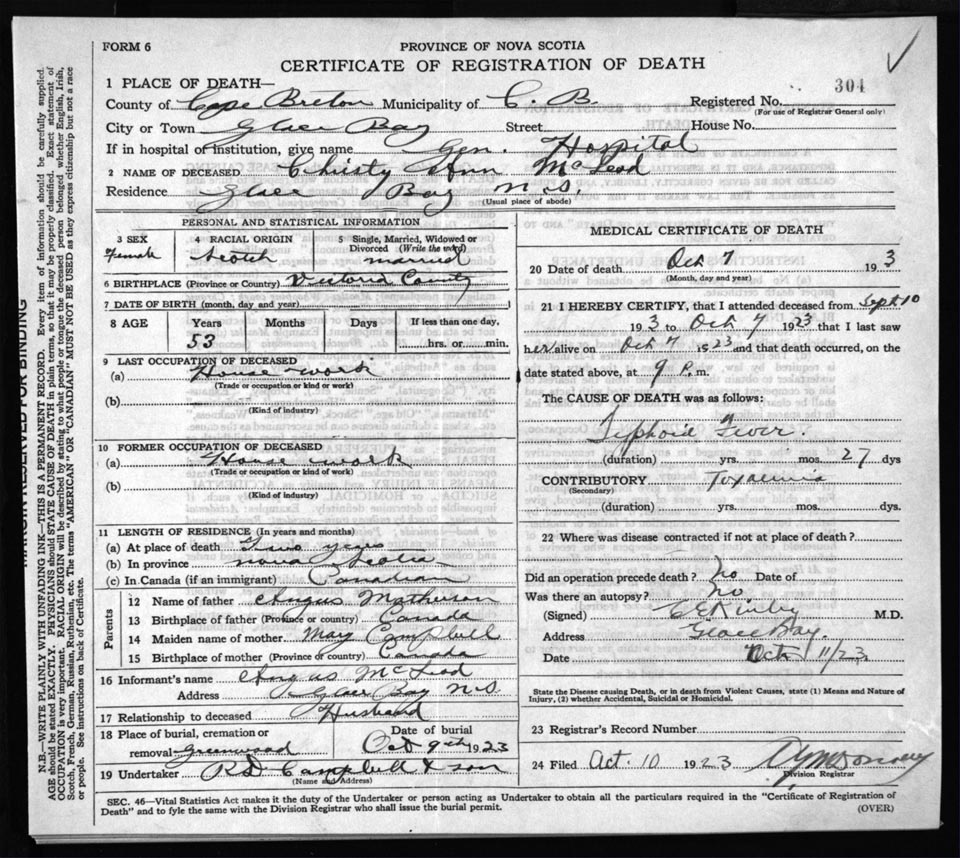 FORM 6
PROVINCE OF NOVA SCOTIA
CERTIFICATE OF REGISTRATION OF DEATH
304
1 PLACE OF DEATH—
County of Cape Breton Municipality of C. B. Registered No.
(For use of Registrar General only)
City or Town Glace Bay Street House No.
If in hospital or institution, give name Gen. Hospital
2 NAME OF DECEASED Christy Ann McLeod
Residence Glace Bay N.S.
(Usual place of abode)
PERSONAL AND STATISTICAL INFORMATION
3 SEX Female
4 RACIAL ORIGIN Scotch
5 Single, Married, Widowed or Divorced (Write the word) married
6 BIRTHPLACE (Province or Country) Victoria County
7 DATE OF BIRTH (month, day and year)
8 AGE Years Months Days If less than one day,
53 hrs. or min.
9 LAST OCCUPATION OF DECEASED
(a) House work
(Trade or occupation or kind or work)
(b)
(Kind of industry)
10 FORMER OCCUPATION OF DECEASED
(a) House work
(Trade or occupation or kind of work)
(b)
(Kind of industry)
11 LENGTH OF RESIDENCE (In years and months)
(a) At place of death Two years
(b) In province Nova Scotia
(c) In Canada (if an immigrant) Canadian
Parents
12 Name of father Angus Matheson
13 Birthplace of father (Province or country) Canada
14 Maiden name of mother Mary Campbell
15 Birthplace of mother (Province or country) Canada
16 Informant's name Angus McLeod
Address Glace Bay N.S.
17 Relationship to deceased Husband
18 Place of burial, cremation or Date of burial
removal Greenwood Oct 9th 1923
19 Undertaker R D Campbell & son
(Name and Address)
MEDICAL CERTIFICATE OF DEATH
20 Date of death Oct 7 193
(Month, day and year)
21 I HEREBY CERTIFY, that I attended deceased from Sept 10
193 to Oct 7 1923 that I last saw
her alive on Oct 7 1923 and that death occurred, on the
date stated above, at 9 P. m.
The CAUSE OF DEATH was as follows:
Typhoid Fever.
(duration) yrs. mos. 27 dys
CONTRIBUTORY Toxaemia
(Secondary)
(duration) yrs. mos. dys.
22 Where was disease contracted if not at place of death?
Did an operation precede death? no Date of
Was there an autopsy? no.
(Signed) M.D.
Address Glace Bay.
Date Oct 11/23
State the Disease causing Death, or in death from Violent Causes, state (1) Means and Nature of
Injury, (2) whether Accidental, Suicidal or Homicidal.
23 Registrar's Record Number
24 Filed Oct. 10 1923
Division Registrar
SEC. 46—Vital Statistics Act makes it the duty of the Undertaker or person acting as Undertaker to obtain all the particulars required in the "Certificate of Registration of
Death" and to fyle the same with the Division Registrar who shall issue the burial permit.
(OVER)
MARGIN RESERVED FOR BINDING
N.B.—WRITE PLAINLY WITH UNFADING INK—THIS IS A PERMANENT RECORD. Every item of information should be carefully supplied.
AGE should be stated EXACTLY. PHYSICIANS should STATE CAUSE OF DEATH in plain terms, so that it may be properly classified. Exact statement of
OCCUPATION is very important. RACIAL ORIGIN will be described by stating to what people or tongue the deceased person belonged, whether English, Irish,
Scotch, French, German, Russian, Ruthenian, etc. The terms "AMERICAN" OR "CANADIAN" MUST NOT BE USED as they express citizenship but not a race
or people. See instructions on back of Certificate.